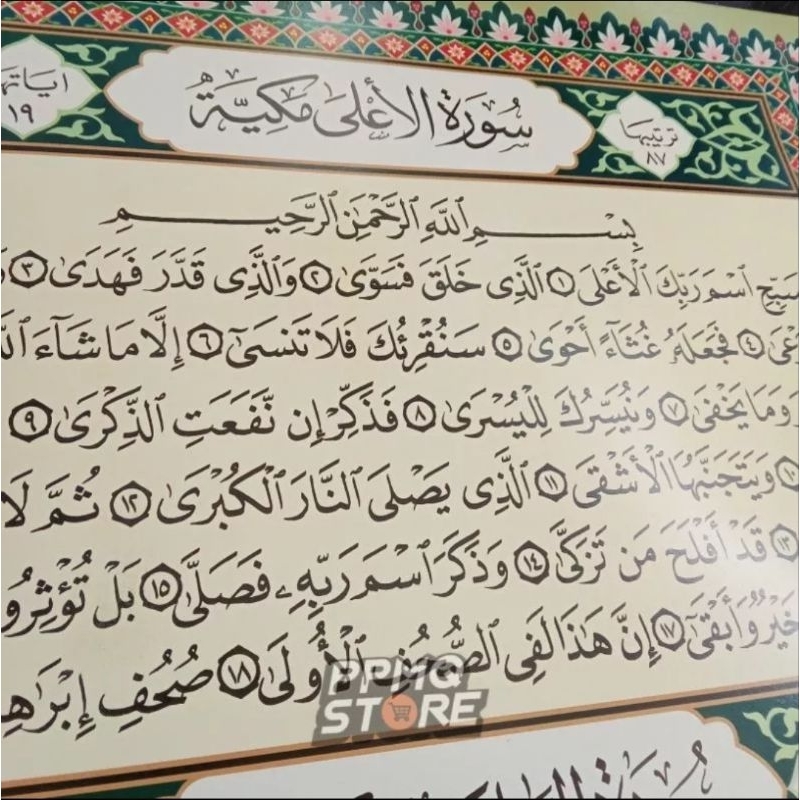 سُورَةُ الأَعْلَى مَكِيَّةٌ
ترتيبها
٨٧
اياتها
١٩
بِسْمِ اللَّهِ الرَّحْمَٰنِ الرَّحِيمِ
سَبِّحِ اسْمَ رَبِّكَ الْأَعْلَى ١ الَّذِي خَلَقَ فَسَوَّىٰ ٢ وَالَّذِي قَدَّرَ فَهَدَىٰ ٣
٤ فَجَعَلَهُ غُثَاءً أَحْوَىٰ ٥ سَنُقْرِئُكَ فَلَا تَنسَىٰ ٦ إِلَّا مَا شَاءَ
وَمَا يَخْفَىٰ ٧ وَنُيَسِّرُكَ لِلْيُسْرَىٰ ٨ فَذَكِّرْ إِن نَّفَعَتِ الذِّكْرَىٰ ٩
١٠ وَيَتَجَنَّبُهَا الْأَشْقَى ١١ الَّذِي يَصْلَى النَّارَ الْكُبْرَىٰ ١٢ ثُمَّ لَا
١٣ قَدْ أَفْلَحَ مَن تَزَكَّىٰ ١٤ وَذَكَرَ اسْمَ رَبِّهِ فَصَلَّىٰ ١٥ بَلْ تُؤْثِرُو
خَيْرٌ وَأَبْقَىٰ ١٧ إِنَّ هَٰذَا لَفِي الصُّحُفِ الْأُولَىٰ ١٨ صُحُفِ إِبْرَاهِ
PPMQ
STORE